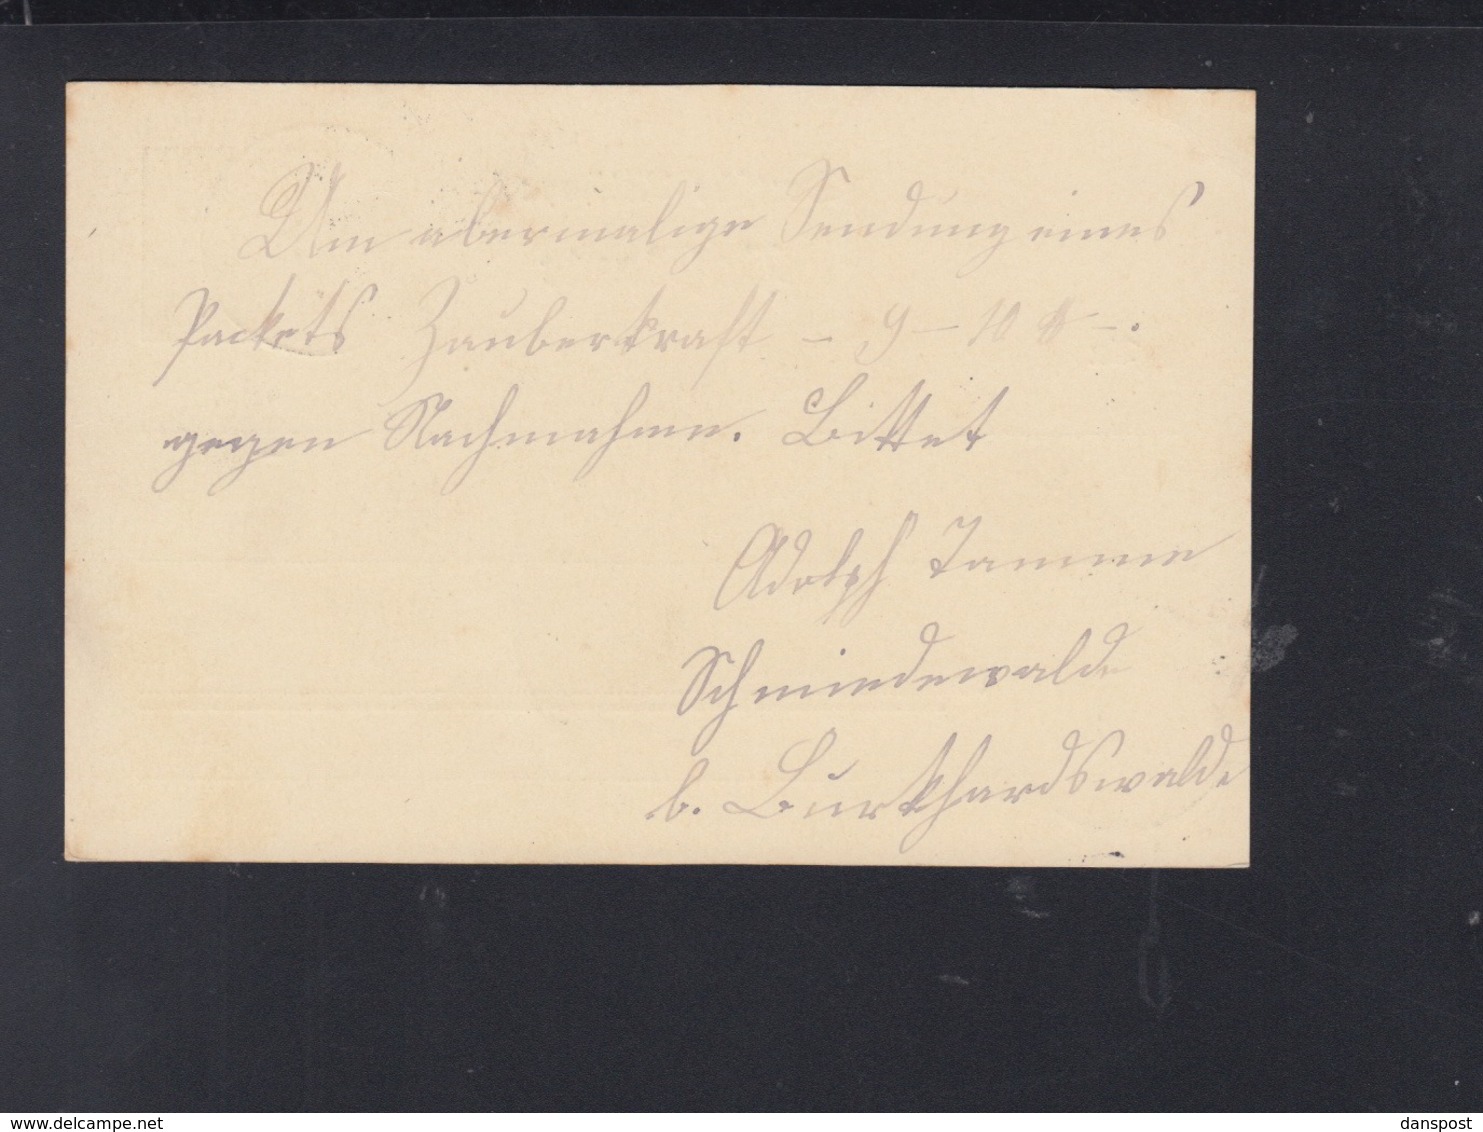 Um abermalige Sendung eines
Packets Zauberkraft – 9 – 10 ℔ –.
gegen Nachnahme. Bittet
Adolph Tamme
Schmiedewalde
b. Burkhardswalde
delcampe.net
danspost